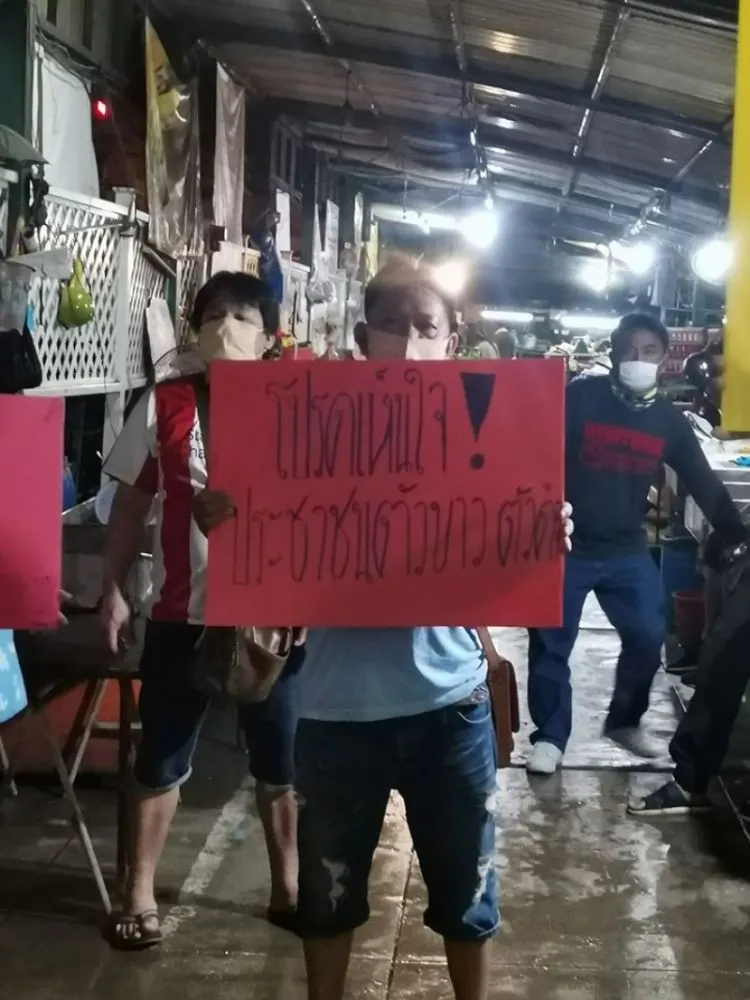 โปรดเห็นใจ!
ประชาชนตาดำขาว ตัวดำ